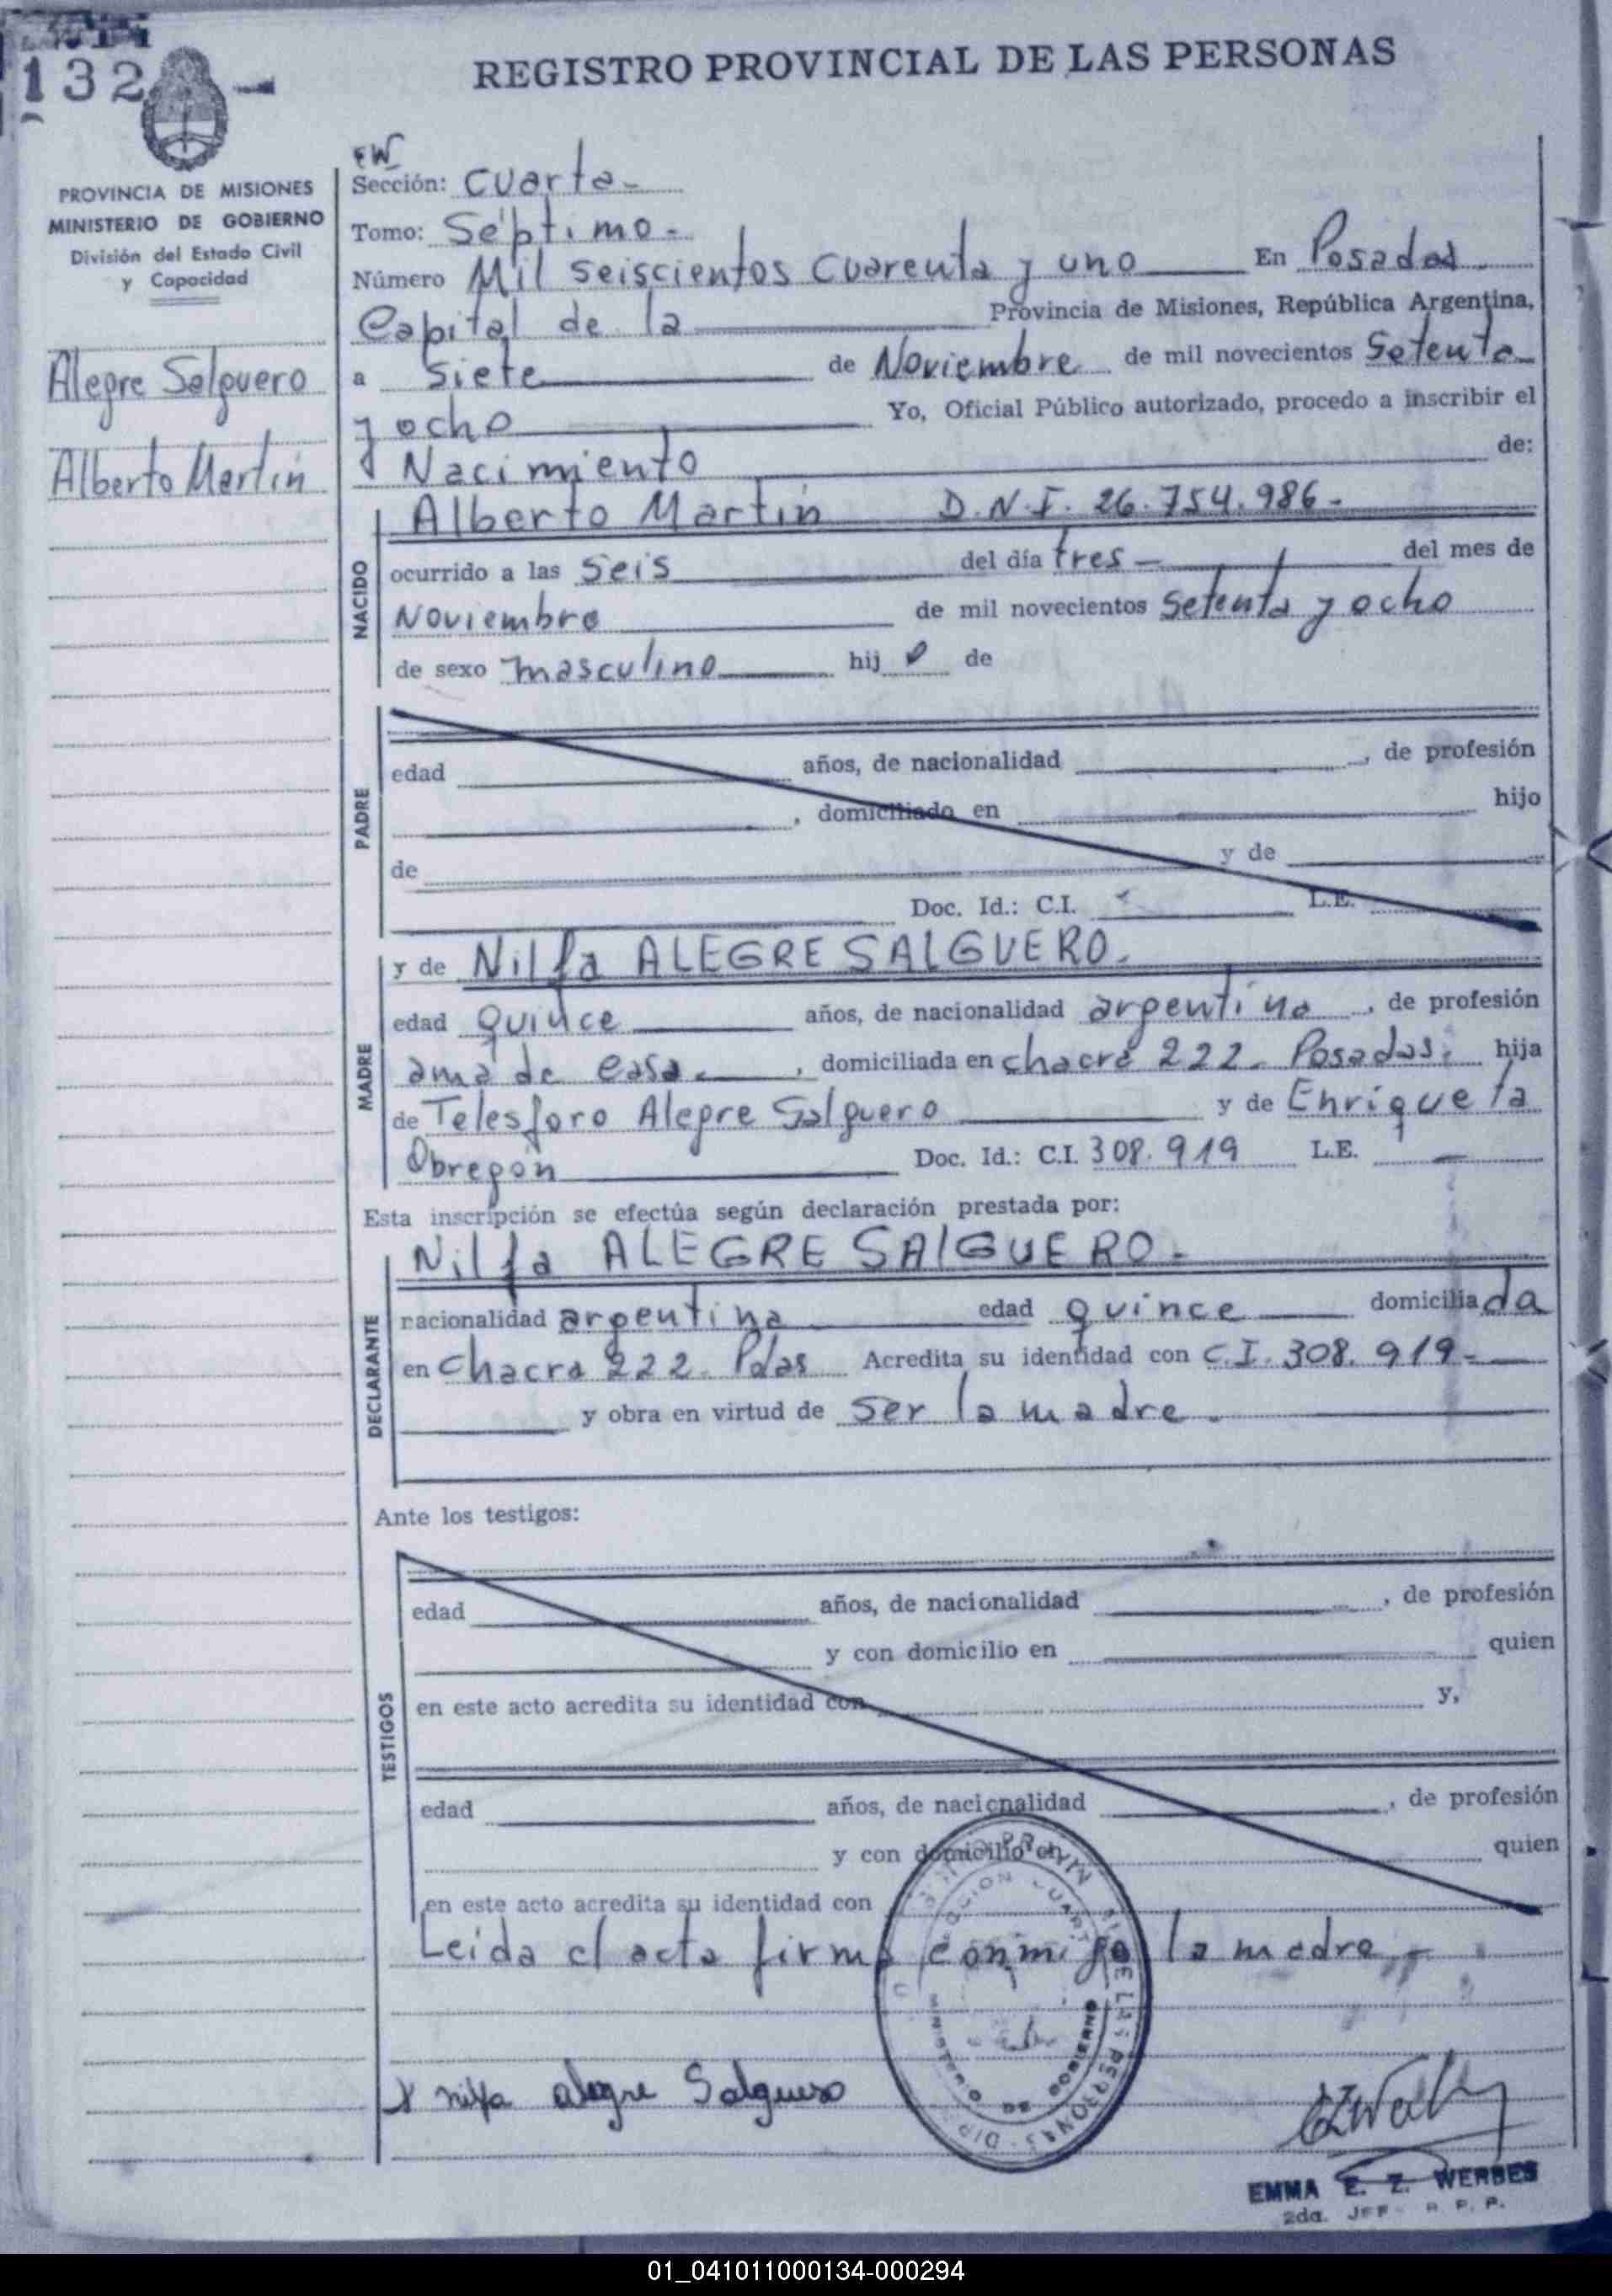 132
REGISTRO PROVINCIAL DE LAS PERSONAS
PROVINCIA DE MISIONES
MINISTERIO DE GOBIERNO
División del Estado Civil
y Capacidad
Alegre Salguero
Alberto Martín
EW
Sección: Cuarta-
Tomo: Séptimo-
Número Mil seiscientos cuarenta y uno En Posadas
Capital de la Provincia de Misiones, República Argentina,
a siete de Noviembre de mil novecientos setenta
y ocho Yo, Oficial Público autorizado, procedo a inscribir el
Nacimiento de:
NACIDO
Alberto Martín D.N.I. 26.754.986-
ocurrido a las seis del día tres- del mes de
Noviembre de mil novecientos setenta y ocho
de sexo masculino hijo de
PADRE
edad años, de nacionalidad , de profesión
, domiciliado en hijo
de y de
Doc. Id.: C.I. L.E.
MADRE
y de Nilfa ALEGRE SALGUERO.
edad quince años, de nacionalidad argentina, de profesión
ama de casa. , domiciliada en chacra 222. Posadas. hija
de Telesforo Alegre Salguero y de Enriqueta
Obregón Doc. Id.: C.I. 308.919 L.E. —
Esta inscripción se efectúa según declaración prestada por:
DECLARANTE
Nilfa ALEGRE SALGUERO-
nacionalidad argentina edad quince domiciliada
en Chacra 222. Pdas Acredita su identidad con C.I. 308.919-
y obra en virtud de ser la madre.
Ante los testigos:
TESTIGOS
edad años, de nacionalidad , de profesión
y con domicilio en quien
en este acto acredita su identidad con y,
edad años, de nacionalidad , de profesión
y con domicilio en quien
en este acto acredita su identidad con
Leida el acta firma conmigo la madre-
MINISTERIO DE GOBIERNO
x nilfa alegre Salguero
EMMA E. Z. WERBES
2da. JEF R. P. P.
01_041011000134-000294